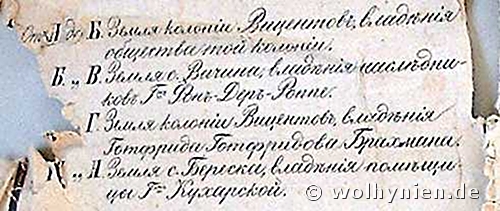 Отъ А до Б. Земля колоніи Вицентовъ, владѣнія
общества той колоніи.
Б. „ В. Земля с. Вичина, владѣнія наслѣдни-
ковъ Гна Фонъ-Деръ-Роппе.
Г. Земля колоніи Вицентовъ, владѣнія
Готфрида Готфридова Брахмана.
„ А. Земля с. Береска, владѣнія помѣщи-
цы Гжи Кухарской.
© wolhynien.de